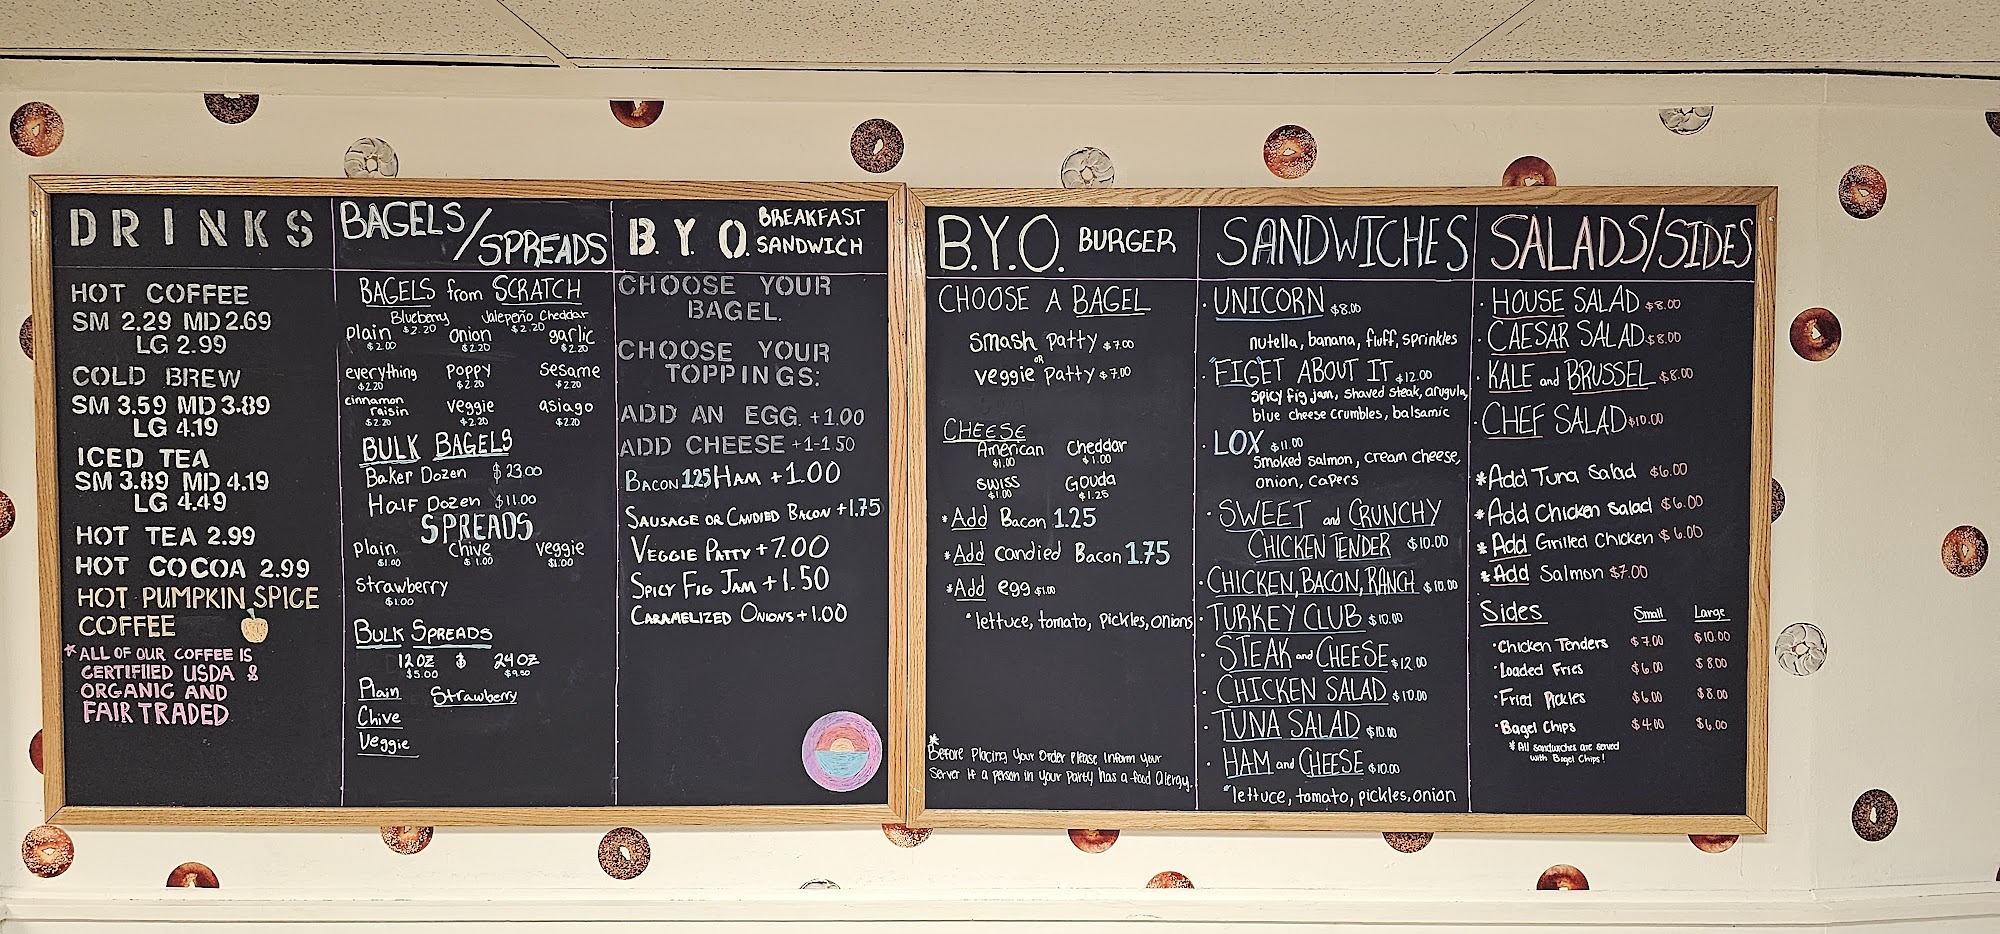 DRINKS
HOT COFFEE
SM 2.29 MD 2.69
LG 2.99
COLD BREW
SM 3.59 MD 3.89
LG 4.19
ICED TEA
SM 3.89 MD 4.19
LG 4.49
HOT TEA 2.99
HOT COCOA 2.99
HOT PUMPKIN SPICE
COFFEE
*ALL OF OUR COFFEE IS
CERTIFIED USDA &
ORGANIC AND
FAIR TRADED
BAGELS/
SPREADS
BAGELS from SCRATCH
Blueberry Jalepeño Cheddar
$2.20 $2.20
plain onion garlic
$2.00 $2.20 $2.20
everything poppy sesame
$2.20 $2.20 $2.20
cinnamon
raisin veggie asiago
$2.20 $2.20 $2.20
BULK BAGELS
Baker Dozen $23.00
Half Dozen $11.00
SPREADS
plain chive veggie
$1.00 $1.00 $1.00
strawberry
$1.00
BULK SPREADS
12 OZ $ 24 OZ
$5.00 $9.50
Plain Strawberry
Chive
Veggie
B.Y.O. BREAKFAST
SANDWICH
CHOOSE YOUR
BAGEL.
CHOOSE YOUR
TOPPINGS:
ADD AN EGG. +1.00
ADD CHEESE +1-1.50
BACON 1.25 HAM +1.00
SAUSAGE OR CANDIED BACON +1.75
VEGGIE PATTY +7.00
SPICY FIG JAM +1.50
CARAMELIZED ONIONS +1.00
B.Y.O. BURGER
CHOOSE A BAGEL
smash patty $7.00
or
veggie patty $7.00
CHEESE
American Cheddar
$1.00 $1.00
swiss Gouda
$1.00 $1.25
*Add Bacon 1.25
*Add candied Bacon 1.75
*Add egg $1.00
*lettuce, tomato, pickles, onions
*
Before Placing Your Order Please Inform Your
Server If a person in your Party has a food Alergy.
SANDWICHES
· UNICORN $8.00
nutella, banana, fluff, sprinkles
· "FIG"ET ABOUT IT $12.00
spicy fig jam, shaved steak, arugula,
blue cheese crumbles, balsamic
· LOX $11.00
smoked salmon, cream cheese,
onion, capers
· SWEET and CRUNCHY
CHICKEN TENDER $10.00
· CHICKEN, BACON, RANCH $10.00
· TURKEY CLUB $10.00
· STEAK and CHEESE $12.00
· CHICKEN SALAD $10.00
· TUNA SALAD $10.00
· HAM and CHEESE $10.00
*lettuce, tomato, pickles, onion
SALADS/SIDES
· HOUSE SALAD $8.00
· CAESAR SALAD $8.00
· KALE and BRUSSEL $8.00
· CHEF SALAD $10.00
*Add Tuna Salad $6.00
*Add Chicken Salad $6.00
*Add Grilled Chicken $6.00
*Add Salmon $7.00
Sides Small Large
·Chicken Tenders $7.00 $10.00
·Loaded Fries $6.00 $8.00
·Fried Pickles $6.00 $8.00
·Bagel Chips $4.00 $6.00
*All sandwiches are served
with Bagel Chips!